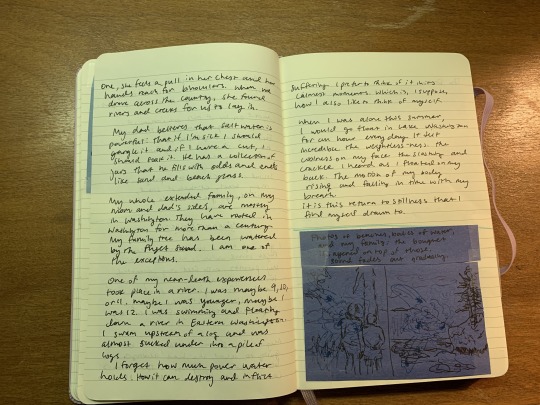 One, she feels a pull in her chest and her
hands reach for boulders. When we
drove across the country, she found
rivers and creeks for us to lay in.
My dad believes that salt water is
powerful: that if I'm sick I should
gargle it and if I have a cut, I
should soak it. He has a collection of
jars that he fills with odds and ends
like sand and beach peas.
My whole extended family, on my
mom and dad's sides, are mostly
in Washington. They have rooted in
Washington for more than a century.
My family tree has been watered
by the Puget Sound. I am one of
the exceptions.
One of my near-death experiences
took place in a river. I was maybe 9, 10,
or 11. Maybe I was younger, maybe I
was 12. I was swimming and floating
down a river in Eastern Washington.
I swam upstream of a log and was
almost sucked under into a pile of
logs.
I forget how much power water
holds. How it can destroy and inflict
suffering. I prefer to think of it in its
calmest moments. Which is, I suppose,
how I also like to think of myself.
When I was alone this summer,
I would go float in Lake Washington
for an hour every day. It felt
incredible. The weightlessness. The
coolness on my face. The slushing and
crackle I heard as I floated on my
back. The motion of my body
rising and falling in time with my
breath.
It is this return to stillness that I
find myself drawn to.
Photos of beaches, bodies of water,
and my family. The
on top of those.
Sound fades out gradually.